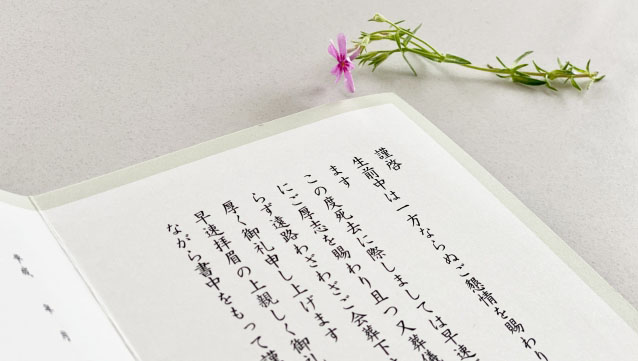 謹啓
生前中は一方ならぬご懇情を賜わり
ます
この度死去に際しましては早速
にご厚志を賜わり且つ又葬儀
らず遠路わざわざご会葬下
厚く御礼申し上げます
早速拝眉の上親しく御礼
ながら書中をもって謹
年 月